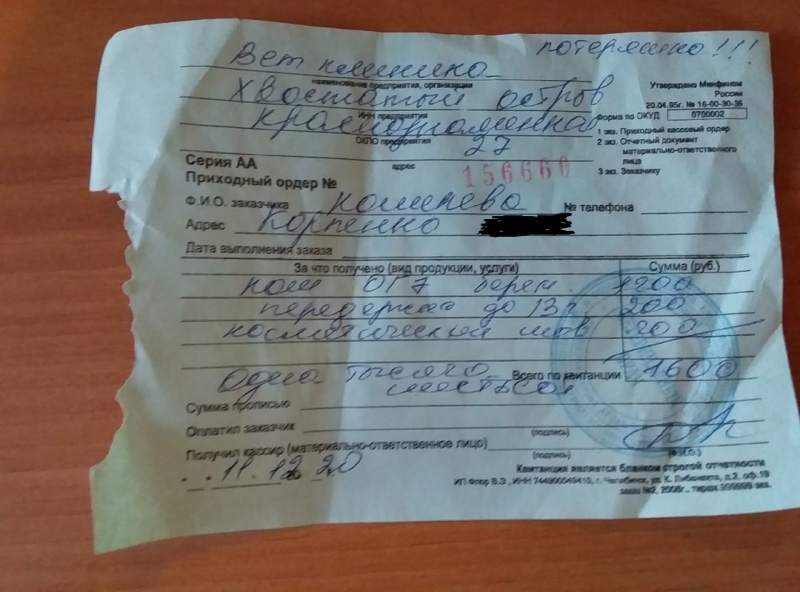 потеряшно!!!
Вет клиника
наименование предприятия, организации
Хвостатый остров
ИНН предприятия
Краснознаменная
ОКПО предприятия
27
адрес
Утверждено Минфином
России
20.04.95г. № 16-00-30-35
форма по ОКУД 0700002
1 экз. Приходный кассовый ордер
2 экз. Отчетный документ
материально-ответственного
лица
3 экз. Заказчику
Серия АА
156660
Приходный ордер №
Ф.И.О. заказчика Кошелева № телефона
Адрес Корпенко
Дата выполнения заказа
За что получено (вид продукции, услуги) Сумма (руб.)
кош ОГЭ берем. 1200
передержка до 13ч 200
косметический шов 200
Всего по квитанции 1600
Одна тысяча
шестьсот
Сумма прописью
Оплатил заказчик
(подпись)
Получил кассир (материально-ответственное лицо)
(подпись) (Ф.И.О.)
11.12.20
Квитанция является бланком строгой отчетности
ИП Флюр В.Э., ИНН 744900045410, г. Челябинск, ул. К. Либкнехта, д.2, оф.19
заказ №2, 2008г., тираж 999999 экз.